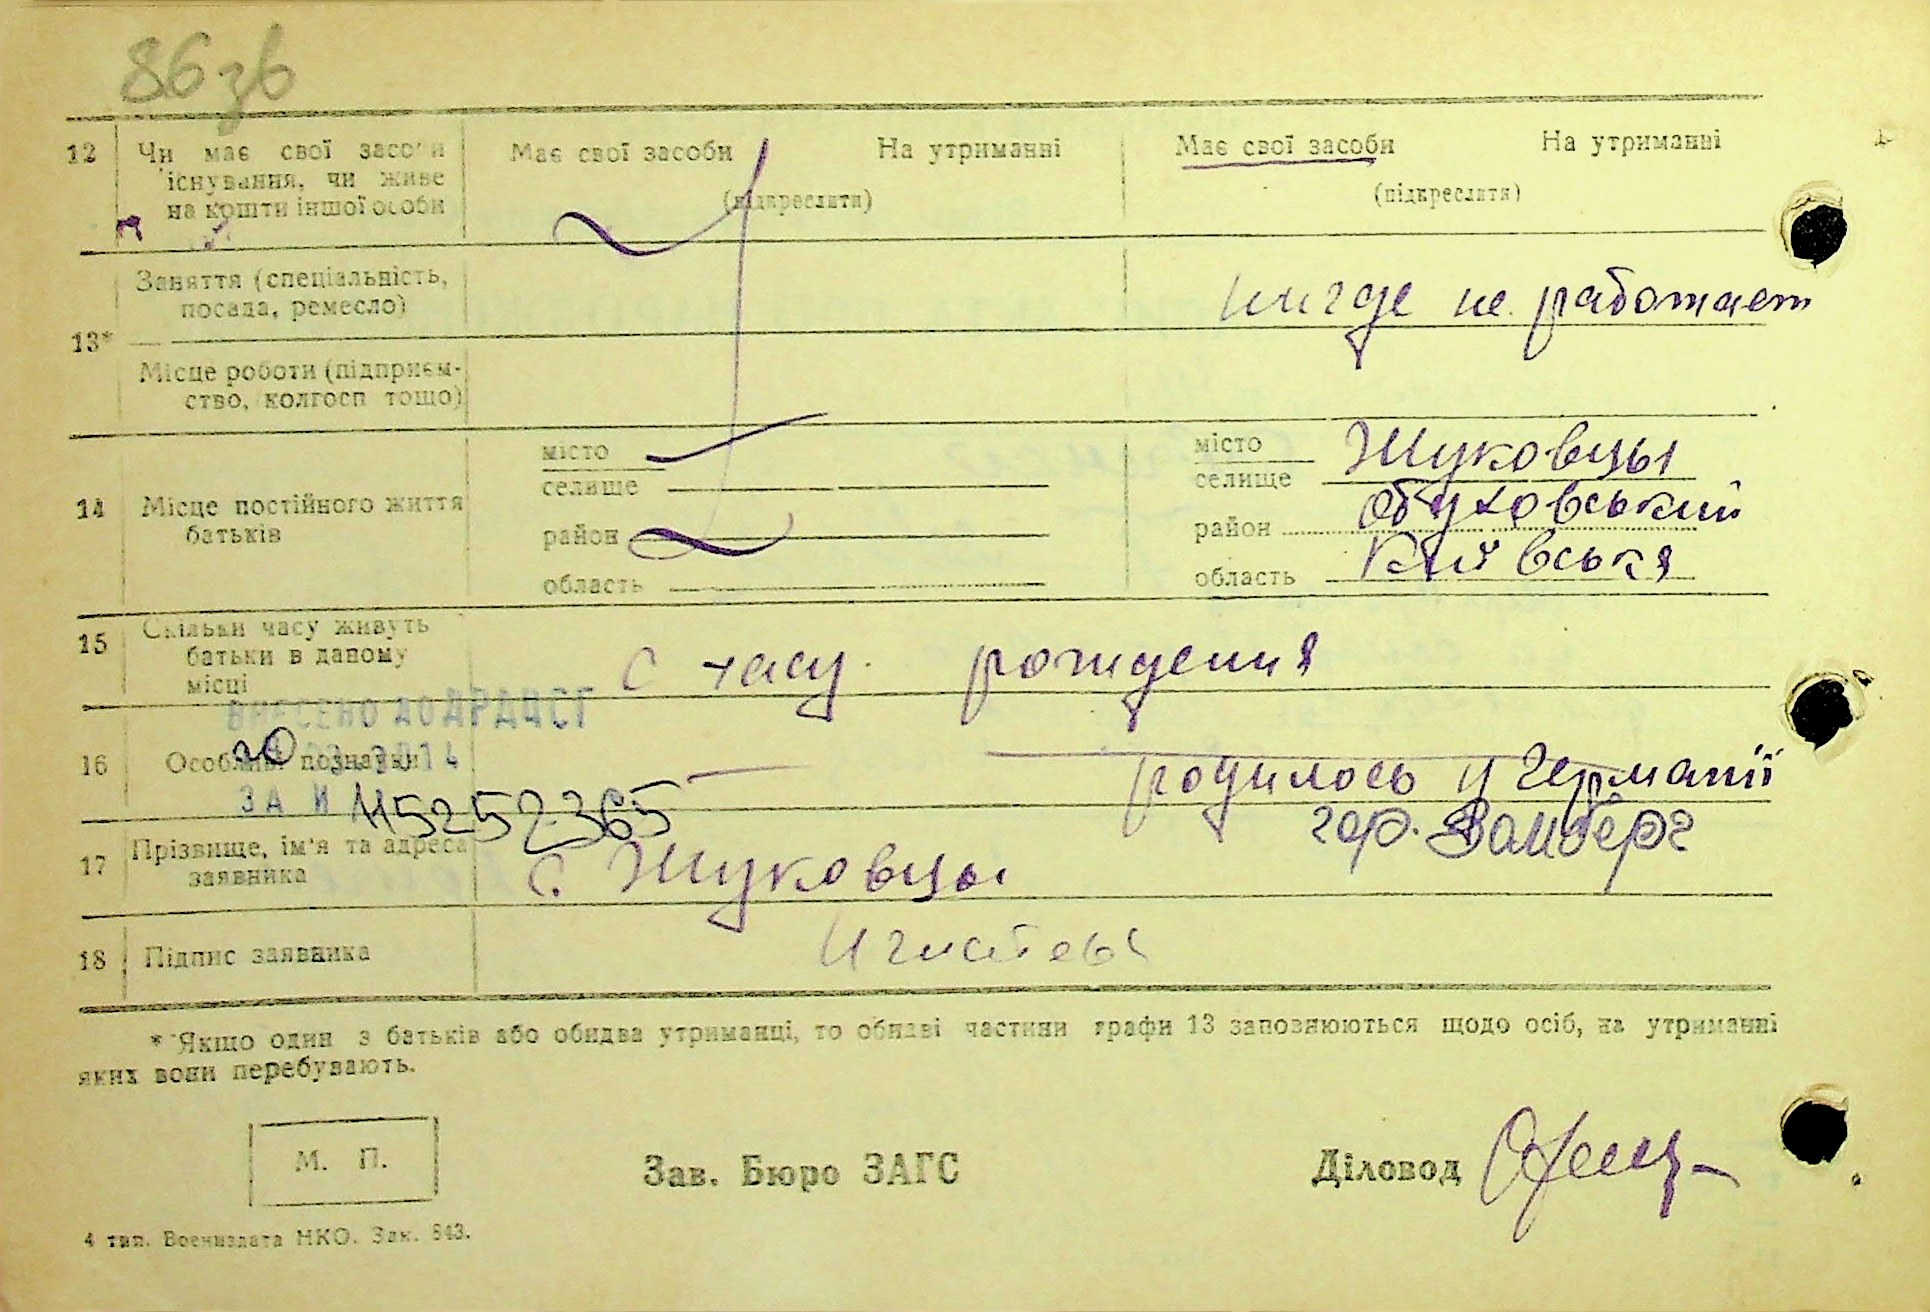 86 зв
12 Чи має свої засоби існування, чи живе на кошти іншої особи
Має свої засоби На утриманні
(підкреслити)
Має свої засоби На утриманні
(підкреслити)
13* Заняття (спеціальність, посада, ремесло)
нигде не работает
Місце роботи (підприєм-
ство, колгосп тощо)
14 Місце постійного життя батьків
місто
селище
район
область
місто
селище Жуковцы
район Обуховський
область Київська
15 Скільки часу живуть
батьки в даному
місці
с часу рождения
ВНЕСЕНО ДО ДРАЦСГ
16 Особливі позначки
20 2014
родилось у Германії
гор. Бамберг
ЗА № 115252365
17 Прізвище, ім'я та адреса
заявника
с. Жуковцы
18 Підпис заявника
* Якщо один з батьків або обидва утриманці, то обидві частини графи 13 заповнюються щодо осіб, на утриманні
яких вони перебувають.
М. П.
Зав. Бюро ЗАГС
Діловод
4 тип. Воениздата НКО. Зак. 843.